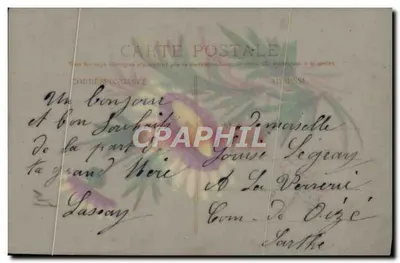 CARTE POSTALE
CORRESPONDANCE
Un bonjour
et bon Souhait
de la part de
ta grand Mère
Lassay
CPAPHIL
Demoiselle
Louise Legeay
A La Verrerie
Com. de Oizé
Sarthe